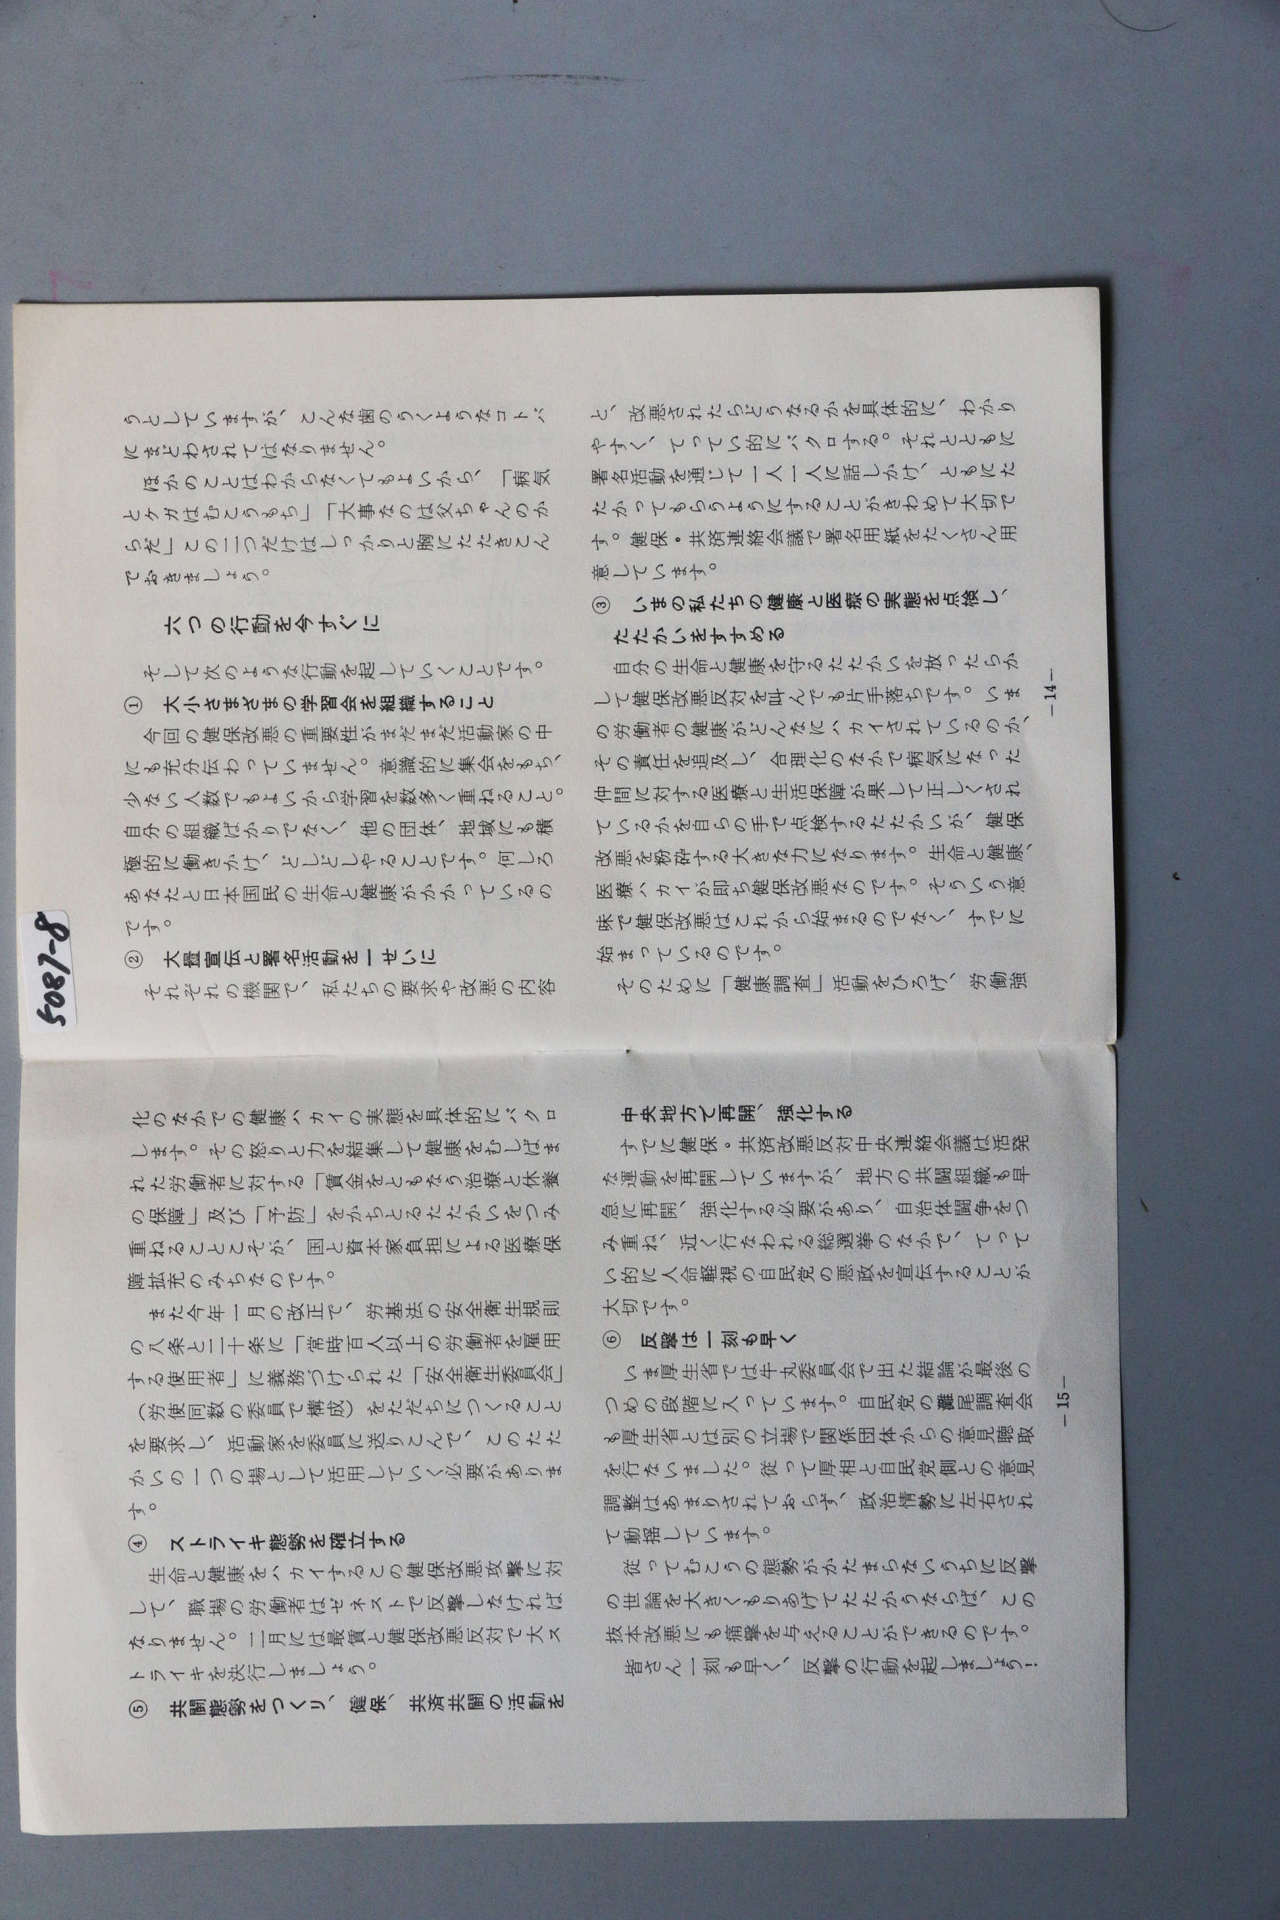 うとしていますが、こんな歯のうくようなコトバ
にまどわされてはなりません。
ほかのことはわからなくてもよいから、「病気
とケガはむこうもち」「大事なのは父ちゃんのか
らだ」この二つだけはしっかりと胸にたたきこん
でおきましょう。
六つの行動を今すぐに
そして次のような行動を起していくことです。
① 大小さまざまの学習会を組織すること
今回の健保改悪の重要性がまだまだ活動家の中
にも充分伝わっていません。意識的に集会をもち、
少ない人数でもよいから学習を数多く重ねること。
自分の組織ばかりでなく、他の団体、地域にも積
極的に働きかけ、どしどしやることです。何しろ
あなたと日本国民の生命と健康がかかっているの
です。
② 大量宣伝と署名活動を一せいに
それぞれの機関で、私たちの要求や改悪の内容
と、改悪されたらどうなるかを具体的に、わかり
やすく、てってい的にバクロする。それとともに
署名活動を通じて一人一人に話しかけ、ともにた
たかってもらうようにすることがきわめて大切で
す。健保・共済連絡会議で署名用紙をたくさん用
意しています。
③ いまの私たちの健康と医療の実態を点検し、
たたかいをすすめる
自分の生命と健康を守るたたかいを放ったらか
して健保改悪反対を叫んでも片手落ちです。いま
の労働者の健康がどんなにハカイされているのか、
その責任を追及し、合理化のなかで病気になった
仲間に対する医療と生活保障が果して正しくされ
ているかを自らの手で点検するたたかいが、健保
改悪を粉砕する大きな力になります。生命と健康、
医療ハカイが即ち健保改悪なのです。そういう意
味で健保改悪はこれから始まるのでなく、すでに
始まっているのです。
そのために「健康調査」活動をひろげ、労働強
—14—
5087-8
化のなかでの健康ハカイの実態を具体的にバクロ
します。その怒りと力を結集して健康をむしばま
れた労働者に対する「賃金をともなう治療と休養
の保障」及び「予防」をかちとるたたかいをつみ
重ねることこそが、国と資本家負担による医療保
障拡充のみちなのです。
また今年一月の改正で、労基法の安全衛生規則
の八条と二十条に「常時百人以上の労働者を雇用
する使用者」に義務づけられた「安全衛生委員会」
（労使同数の委員で構成）をただちにつくること
を要求し、活動家を委員に送りこんで、このたた
かいの一つの場として活用していく必要がありま
す。
④ ストライキ態勢を確立する
生命と健康をハカイするこの健保改悪攻撃に対
して、職場の労働者はゼネストで反撃しなければ
なりません。一一月には最賃と健保改悪反対で大ス
トライキを決行しましょう。
⑤ 共闘態勢をつくり、健保、共済共闘の活動を
中央地方で再開、強化する
すでに健保・共済改悪反対中央連絡会議は活発
な運動を再開していますが、地方の共闘組織も早
急に再開、強化する必要があり、自治体闘争をつ
み重ね、近く行なわれる総選挙のなかで、てって
い的に人命軽視の自民党の悪政を宣伝することが
大切です。
⑥ 反撃は一刻も早く
いま厚生省では牛丸委員会で出た結論が最後の
つめの段階に入っています。自民党の灘尾調査会
も厚生省とは別の立場で関係団体からの意見聴取
を行ないました。従って厚相と自民党側との意見
調整はあまりされておらず、政治情勢に左右され
て動揺しています。
従ってむこうの態勢がかたまらないうちに反撃
の世論を大きくもりあげてたたかうならば、この
抜本改悪にも痛撃を与えることができるのです。
皆さん一刻も早く、反撃の行動を起しましょう！
—15—